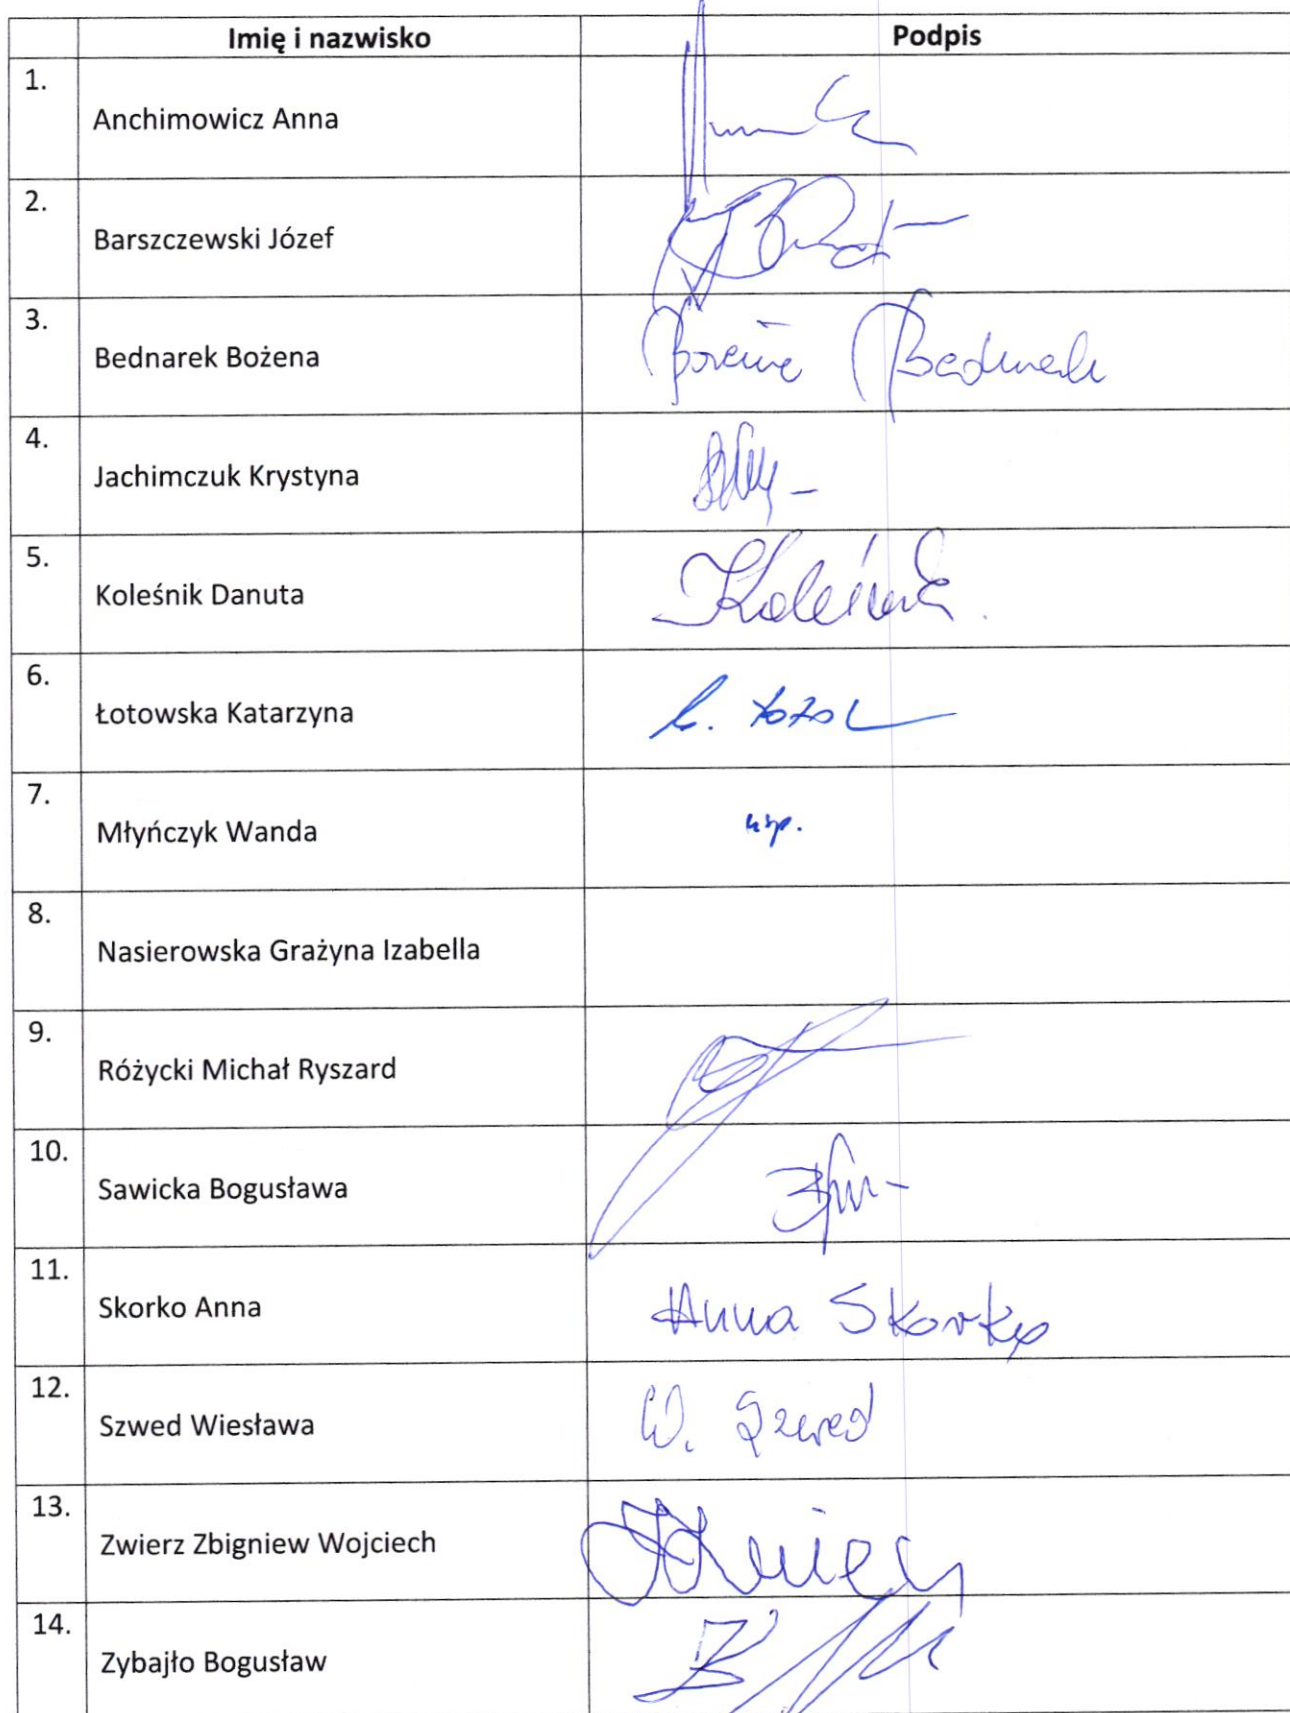 Imię i nazwisko Podpis
1. Anchimowicz Anna
2. Barszczewski Józef
3. Bednarek Bożena Bożena Bednarek
4. Jachimczuk Krystyna
5. Koleśnik Danuta Koleśnik
6. Łotowska Katarzyna
7. Młyńczyk Wanda usp.
8. Nasierowska Grażyna Izabella
9. Różycki Michał Ryszard
10. Sawicka Bogusława
11. Skorko Anna Anna Skorko
12. Szwed Wiesława W. Szwed
13. Zwierz Zbigniew Wojciech
14. Zybajło Bogusław